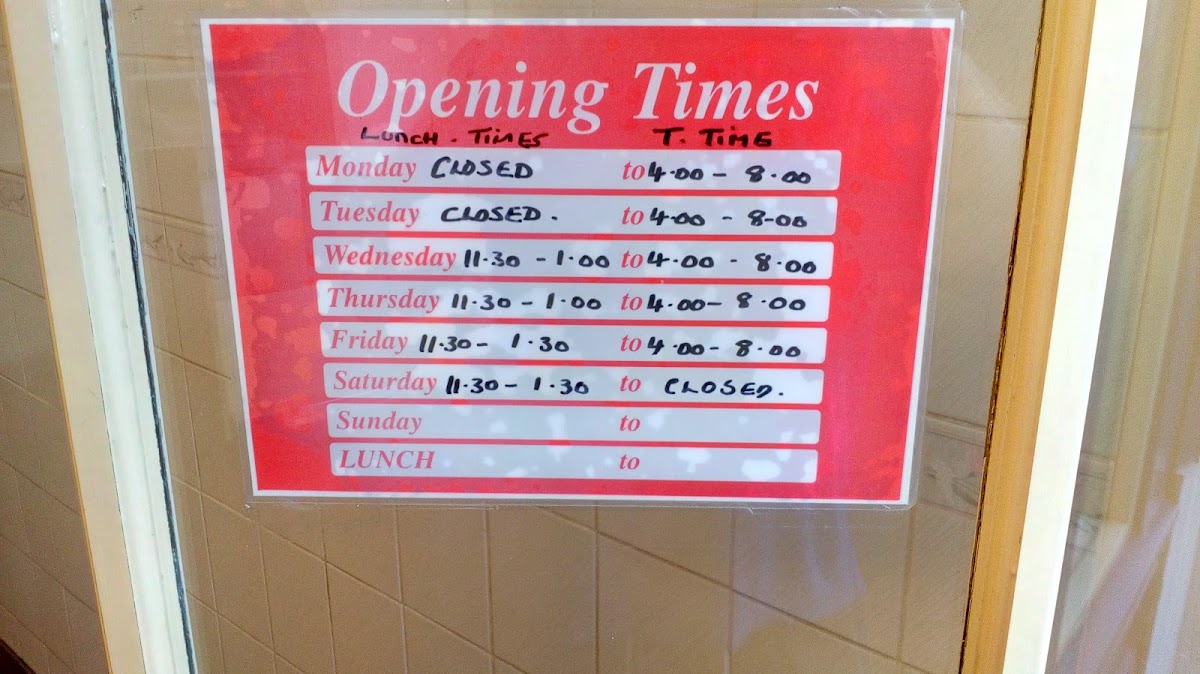 Opening Times
LUNCH - TIMES T. TIME
Monday CLOSED to 4.00 - 8.00
Tuesday CLOSED. to 4.00 - 8-00
Wednesday 11.30 - 1.00 to 4.00 - 8.00
Thursday 11.30 - 1.00 to 4.00 - 8.00
Friday 11.30 - 1.30 to 4.00 - 8.00
Saturday 11.30 - 1.30 to CLOSED.
Sunday to
LUNCH to